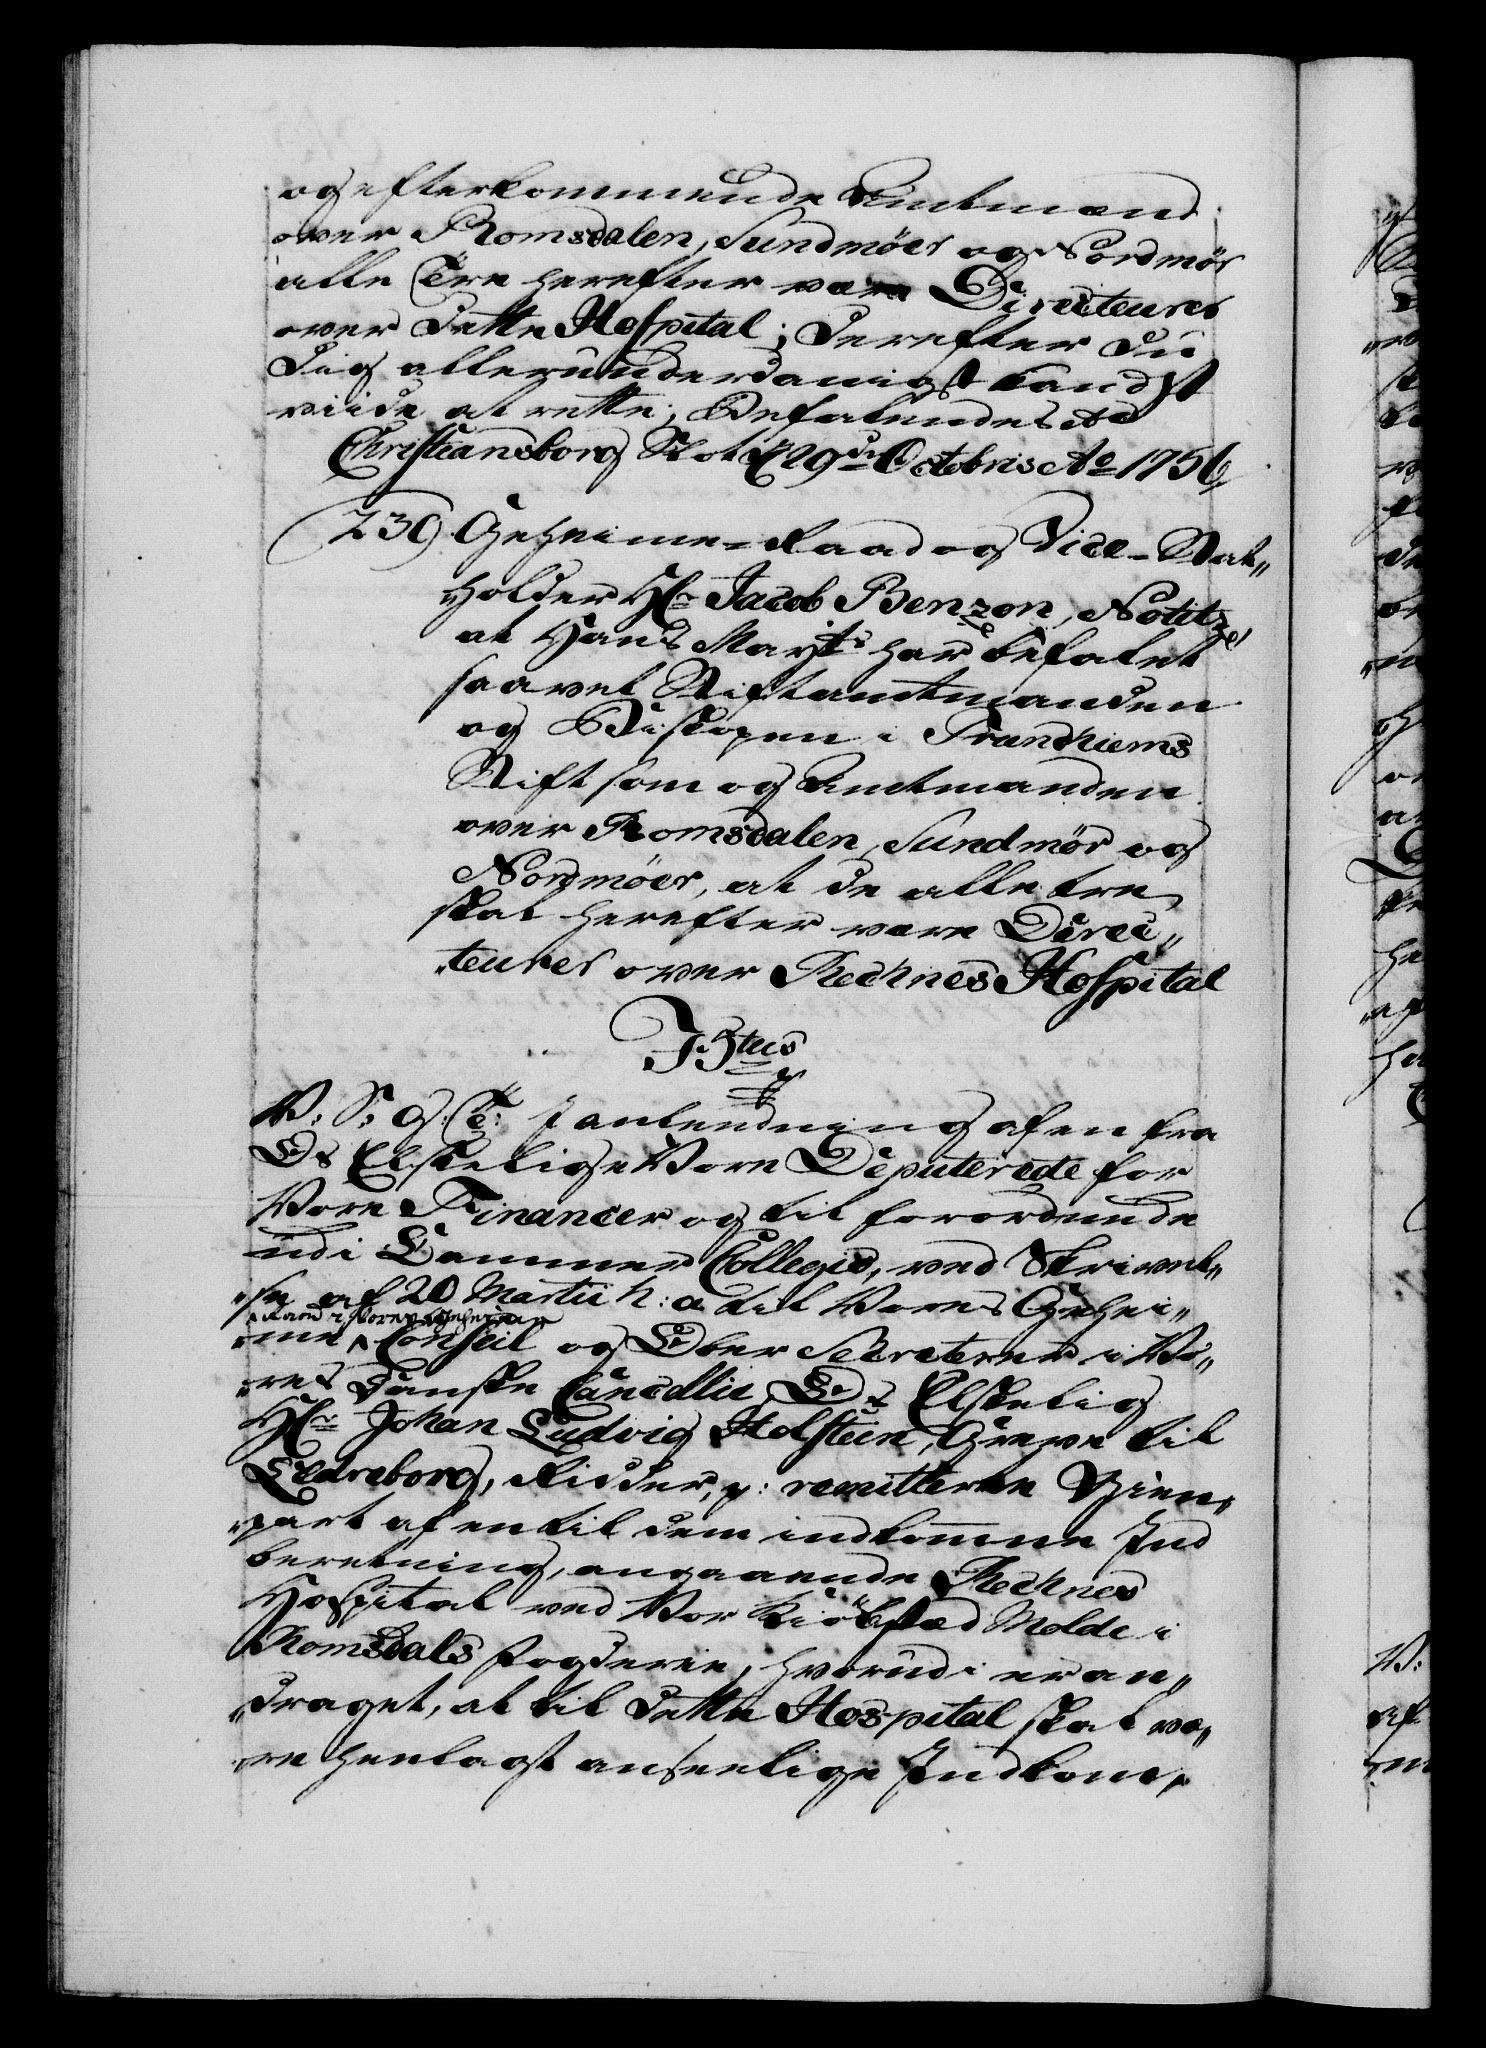 og efterkommende Amtmænd
over Romsdalen, Sundmöer og Nordmör
alle Tre herefter være Directeures
over dette Hospital; Derefter du
dig allerunderdanigst kandst
viide at rette; Befalendes etc
Christiansborg Slot d 29de Octobris Ao 1756
239) Geheime-Raad og Vice-Stat„
„holder Hr Jacob Benzon, Notitz,
at Hans Mayts har befalet
saavel Stiftamtmanden
og Biskopen i Trundhiems
Stift som og Amtmanden
over Romsdalen, Sundmör og
Nordmöer, at de alle tre
skal herefter være Direc„
„teures over Reknes Hospital
F 5tus
V: S: G: T: J anledning af en fra
Os Elskelige Vore Deputerede for
Vore Financer og til forordnende
udi Cammer Collegio, ved Skrivel„
„se af 20 Martii h: a til Vores Gehei„
„Raad i Vores Geheime
„me Conseil og Ober Secreterer i Vo„
„res Danske Cancellie, Os Elskelig
Hr Johan Ludvig Holstein, Greve til
Ledreborg, Ridder, p: remitterede Gien„
„part af en til dem indkomne Ind
beretning, angaaende Reknes
Hospital ved Vor Kiöbstæd Molde i
Romsdals Fogderie, hvorudi er an„
„draget, at til dette Hospital skal væ„
„re henlagt anseelige Indkom„